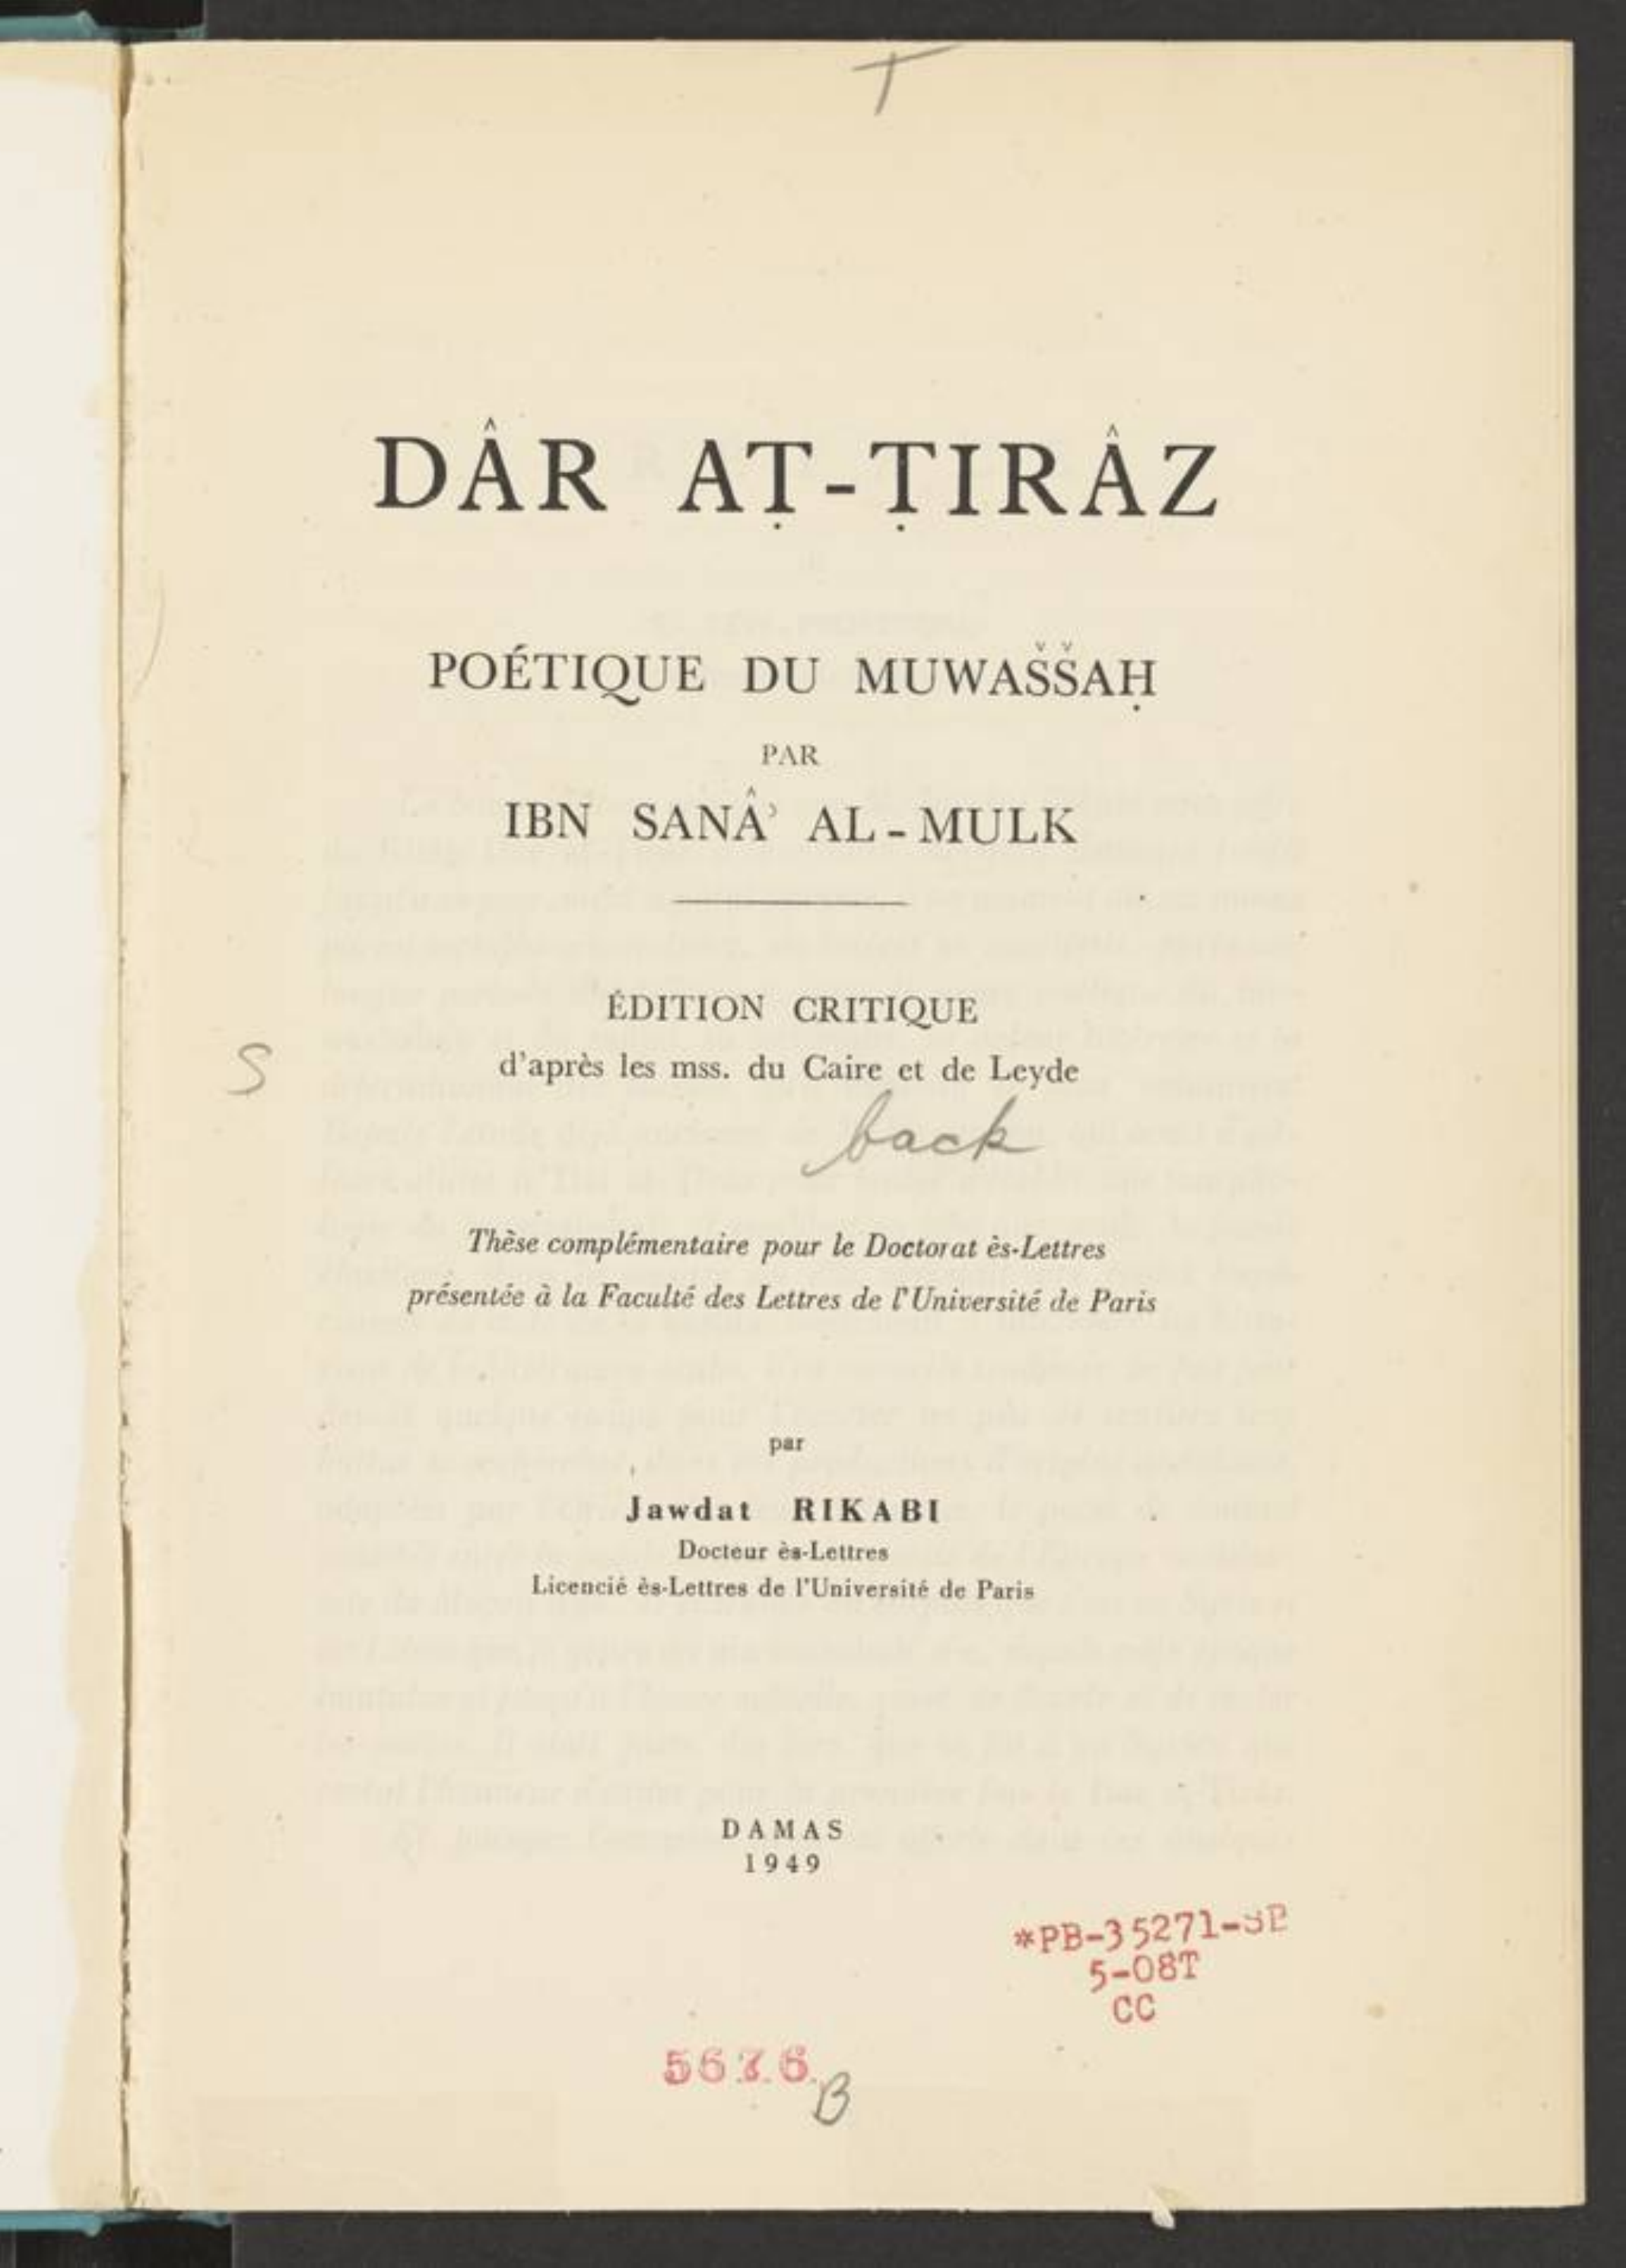 T
DÂR AṬ-ṬIRÂZ
POÉTIQUE DU MUWAŠŠAḤ
PAR
IBN SANÂʾ AL-MULK
ÉDITION CRITIQUE
d'après les mss. du Caire et de Leyde
S
back
Thèse complémentaire pour le Doctorat ès-Lettres
présentée à la Faculté des Lettres de l'Université de Paris
par
Jawdat RIKABI
Docteur ès-Lettres
Licencié ès-Lettres de l'Université de Paris
DAMAS
1949
*PB-35271-SB
5-08T
CC
B